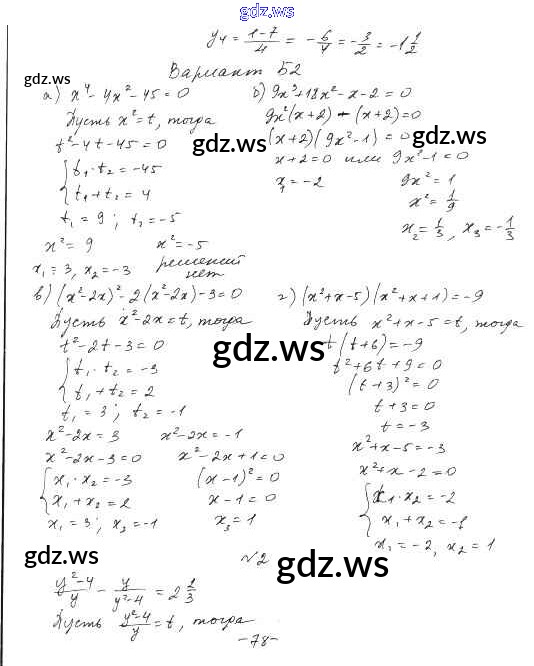 gdz.ws
y₄ = (1-7)/4 = -6/4 = -3/2 = -1 1/2
Вариант Б2
gdz.ws
а) x⁴ - 4x² - 45 = 0
Пусть x² = t, тогда
t² - 4t - 45 = 0
{ t₁ · t₂ = -45
t₁ + t₂ = 4
t₁ = 9 ; t₂ = -5
x² = 9   x² = -5
x₁ = 3, x₂ = -3   решений
нет
б) 9x³ + 18x² - x - 2 = 0
9x²(x+2) - (x+2) = 0
gdz.ws
gdz.ws
(x+2)(9x²-1) = 0
x+2 = 0 или 9x²-1 = 0
x₁ = -2   9x² = 1
x² = 1/9
x₂ = 1/3, x₃ = -1/3
gdz.ws
gdz.ws
в) (x²-2x)² - 2(x²-2x) - 3 = 0
Пусть x²-2x = t, тогда
t² - 2t - 3 = 0
gdz.ws
{ t₁ · t₂ = -3
t₁ + t₂ = 2
t₁ = 3 ; t₂ = -1
x²-2x = 3   x²-2x = -1
x²-2x-3 = 0   x²-2x+1 = 0
{ x₁ · x₂ = -3   (x-1)² = 0
x₁ + x₂ = 2   x-1 = 0
x₁ = 3 ; x₂ = -1   x₃ = 1
г) (x²+x-5)(x²+x+1) = -9
Пусть x²+x-5 = t, тогда
t(t+6) = -9
t²+6t+9 = 0
(t+3)² = 0
t+3 = 0
t = -3
x²+x-5 = -3
x²+x-2 = 0
{ x₁ · x₂ = -2
x₁ + x₂ = -1
x₁ = -2, x₂ = 1
gdz.ws
gdz.ws
№2
(y²-4)/y - y/(y²-4) = 2 2/3
Пусть (y²-4)/y = t, тогда
-78-
gdz.ws
gdz.ws